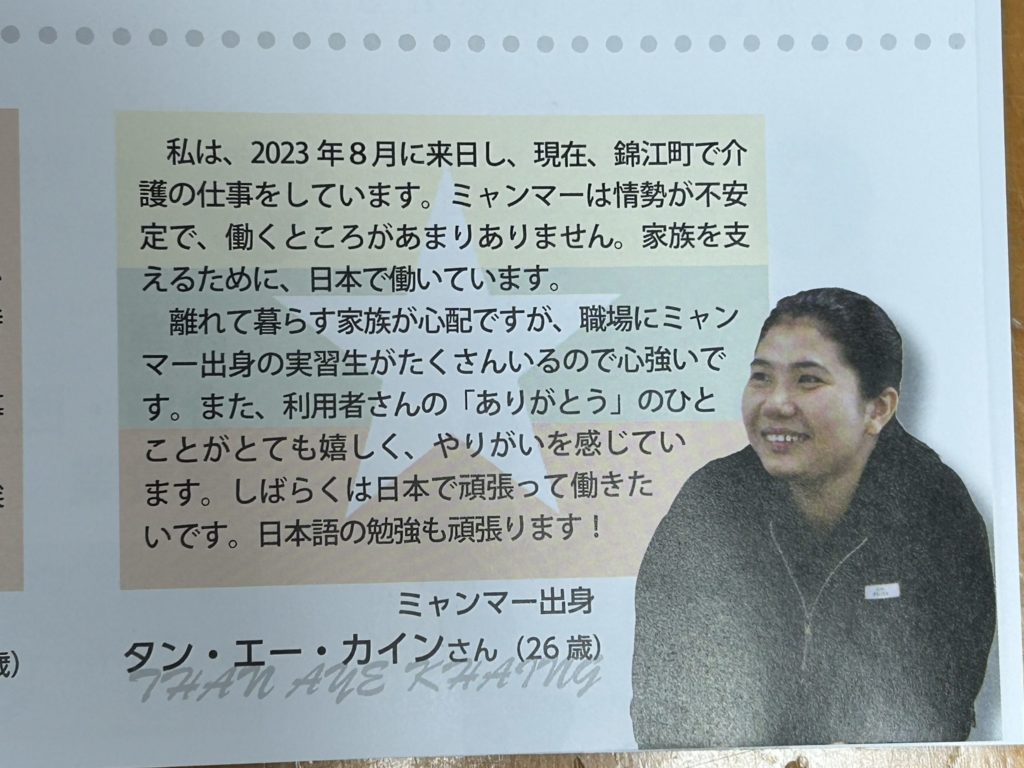 私は、2023 年８月に来日し、現在、錦江町で介
護の仕事をしています。ミャンマーは情勢が不安
定で、働くところがあまりありません。家族を支
えるために、日本で働いています。
離れて暮らす家族が心配ですが、職場にミャン
マー出身の実習生がたくさんいるので心強いで
す。また、利用者さんの「ありがとう」のひと
ことがとても嬉しく、やりがいを感じてい
ます。しばらくは日本で頑張って働きた
いです。日本語の勉強も頑張ります！
ミャンマー出身
タン・エー・カインさん（26 歳）
THAN AYE KHAING
歳）